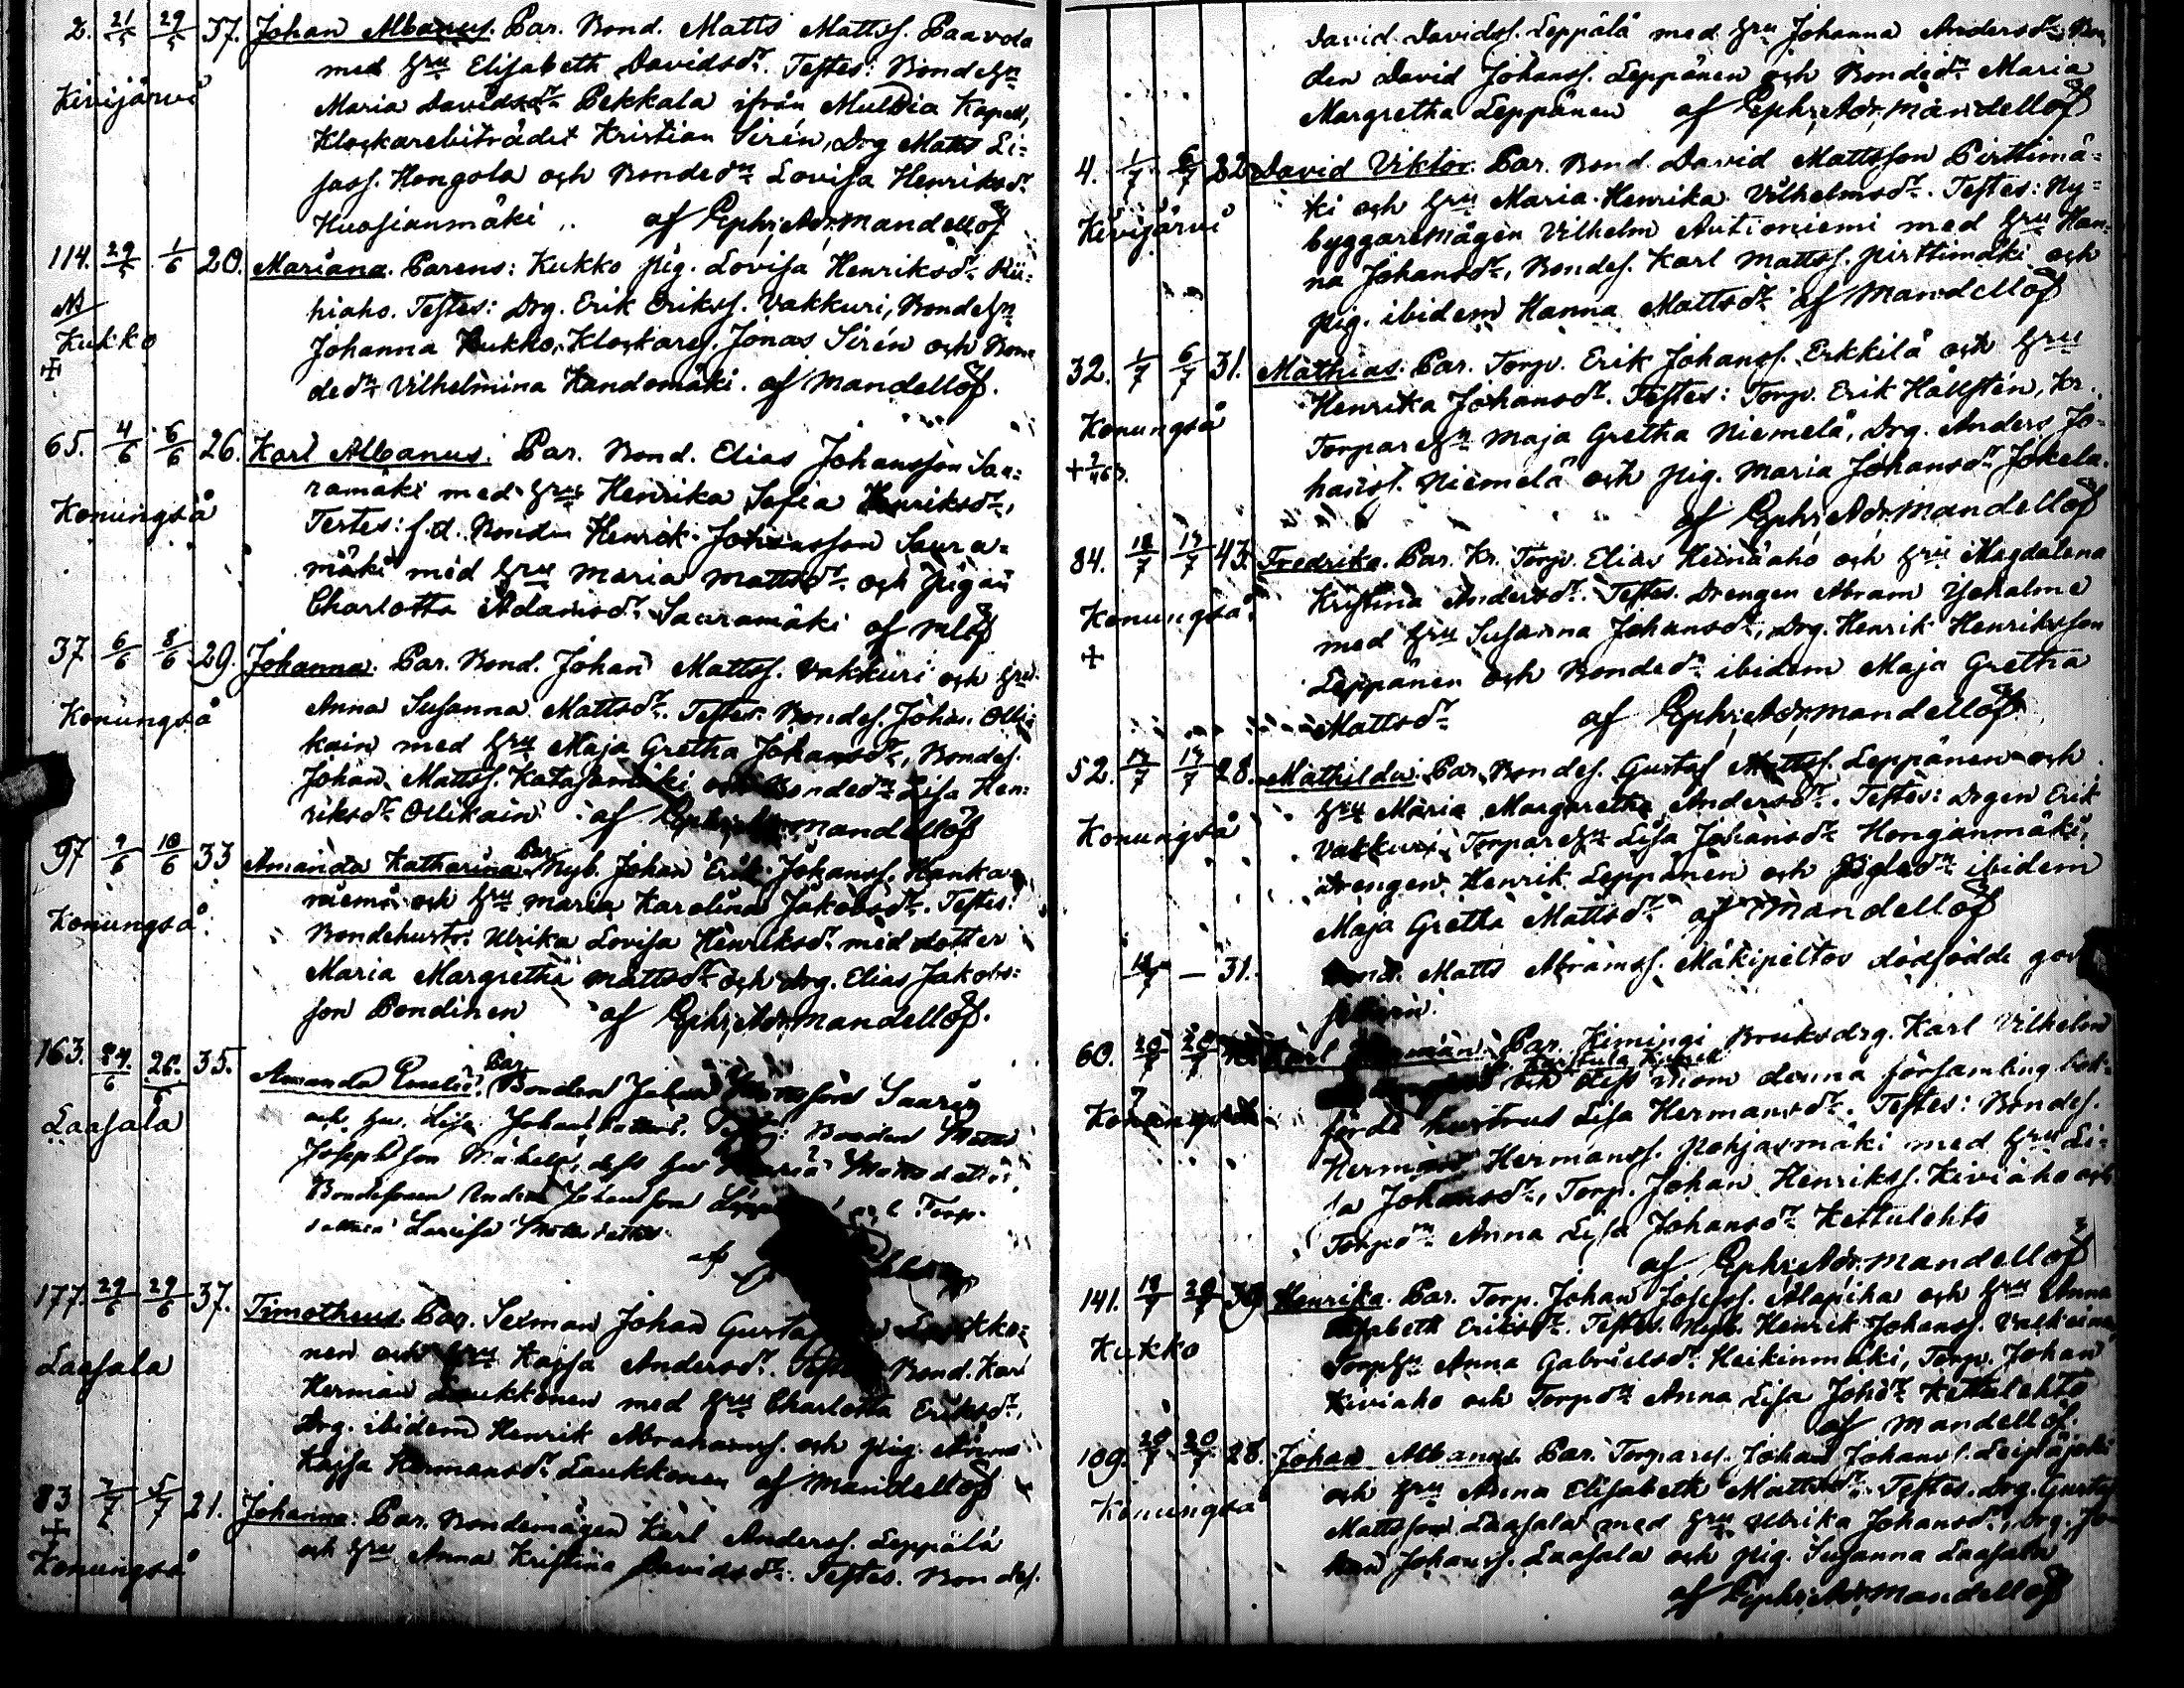 2. 21/5 29/5 37. Johan Albanus. Par. Bond. Matts Mattss. Paavola
med Hru Elisabeth Davidsdr. Testes: Bondehn
Kivijärvi
Maria Davidsdr Pekkala ifrån Multia Kapell,
Klockarebiträdet Kristian Sirén, Drg Matts Li=
sass. Hongola och Bondedn Lovisa Henriksdr
Huosianmäki af Ephr. Adr. Mandellöf
114. 29/5 1/6 20. Mariana. Parens: Kukko pig. Lovisa Henriksdr Rii=
hiaho. Testes: Drg. Erik Erikss. Vakkuri, Bondehn
Kukko
Johanna Kukko, Klockares. Jonas Sirén och Bon
dedr Vilhelmina Kandomäki. af Mandellöf.
65. 4/6 6/6 26. Karl Albanus. Par. Bond. Elias Johansson Sau=
ramäki med Hru Henrika Sofia Henriksdr,
Konungså
Testes: f.d. Bonden Henrik Johansson Saura=
mäki med Hru Maria Mattsdr och pigan
Charlotta Adamsdr Sauramäki af Mlöf
37 6/6 8/6 29. Johanna. Par. Bond. Johan Mattss. Vakkuri och Hru
Anna Susanna Mattsdr. Testes: Bondes. Johan Olli=
Konungså
kain med Hru Maja Gretha Johansdr, Bondes.
Johan Mattss. Katajamäki och Bondedn Lisa Hen=
riksdr Ollikain af Ephr. Adr. Mandellöf
97 9/6 10/6 33 Amanda Katharina. Par. Nyb. Johan Erik Johanss. Hanka=
niemi och Hru Maria Karolina Jakobsdr. Testes:
Konungså.
Bondehustr. Ulrika Lovisa Henriksdr med dotter
Maria Margretha Mattsdr och Drg. Elias Jakobs=
son Pondinen af Ephr. Adr. Mandellöf.
163. 24/6 26/6 35. Amanda Emelie. Par. Bonden Johan Mattsson Saari
och hu. Lisa Johansdotter. Bonden Matts
Laasala
Josephsson Mäkelä, dess hu Maria Mattsdotter,
Bondesonen Anders Johansson och Torp.
dottren Lovisa Mattsdotter.
af
177. 29/6 29/6 37. Timotheus. Par. Sexman Johan Gustafs Laukko=
nen och Hru Kajsa Andersdr. Testes Bond. Karl
Laasala
Herman Laukkonen med Hru Charlotta Eriksdr,
Drg. ibidem Henrik Abrahamss. och pig. Anna
Kajsa Hermansdr Laukkonen af Mandellöf
83 2/7 5/7 21. Johanna: Par. Bondemågen Karl Anderss. Leppälä
Konungså
och Hru Anna Kristina Davidsdr. Testes. Bondes.
David Davidss. Leppälä med Hru Johanna Andersdr, Bon
den David Johanss. Leppänen och Bondedn Maria
Margretha Leppänen af Ephr. Adr. Mandellöf
4. 1/7 6/7 32 David Viktor. Par. Bond. David Mattsson Pirttimä=
ki och Hru Maria Henrika Vilhelmsdr. Testes: Ny=
Kivijärvi
byggaremågen Vilhelm Autioniemi med Hru Han=
na Johansdr, Bondes. Karl Mattss. Pirttimäki och
pig. ibidem Hanna Mattsdr af Mandellöf
32. 1/7 6/7 31. Mathias. Par. Torp. Erik Johanss. Erkkilä och Hru
Henrika Johansdr. Testes: Torp. Erik Hällstén, Kr.
Konungså
Torparehn Maja Gretha Niemelä, Drg. Anders Jo=
hanss. Niemelä och pig. Maria Johansdr Jokela.
af Ephr. Adr. Mandellöf
84. 12/7 17/7 43. Fredrika. Par. Kr. Torp. Elias Heinäaho och Hru Magdalena
Kristina Andersdr. Testes. Drengen Abram Yjokalmo
Konungså.
med Hru Susanna Johansdr, Drg. Henrik Henriksson
Leppänen och Bondedn ibidem Maja Gretha
Mattsdr af Ephr. Adr. Mandellöf
52. 12/7 17/7 28. Mathilda. Par. Bondes. Gustaf Mattss. Leppänen och
Hru Maria Margaretha Andersdr. Testes: Drgen Erik
Konungså
Vakkuri, Torparehn Lisa Johansdr Honganmäki,
Drengen Henrik Leppänen och ibidem
Maja Gretha Mattsdr af Mandellöf
— 31. Bond. Matts Abramss. Mäkipeltos dödfödde gos
60. 20/7 20/7 Karl Herman. Par. Kimingi Bruksdrg. Karl Vilhelm
och dess inom denna församling kyrk=
Konungså
förda hustrus Lisa Hermansdr. Testes: Bondes.
Herman Hermanss. Pohjasmäki med Hru Li=
sa Johansdr, Torp. Johan Henrikss. Kiviaho och
Torpdn Anna Lisa Johansdr Kettulehto
af Ephr. Adr. Mandellöf
141. 18/7 20/7 39 Henrika. Par. Torp. Johan Josefss. Alapiha och Hru Anna
Elisabeth Eriksdr. Testes. Nyb. Henrik Johanss.
Kukko
Torphn Anna Gabrielsdr Heikinmäki, Torp. Johan
Kiviaho och Torpdn Anna Lisa Johdr Kettulehto
af Mandellöf.
109. 20/7 20/7 28. Johan Albanus. Par. Torpares. Johan Johanss. Leipäjoki
och Hru Anna Elisabeth Mattsdr. Testes. Drg. Gustaf
Konungså
Mattsson Laasala med Hru Ulrika Johansdr, Drg. Jo
han Johanss. Laasala och pig. Susanna Laasala
af Ephr. Adr. Mandellöf